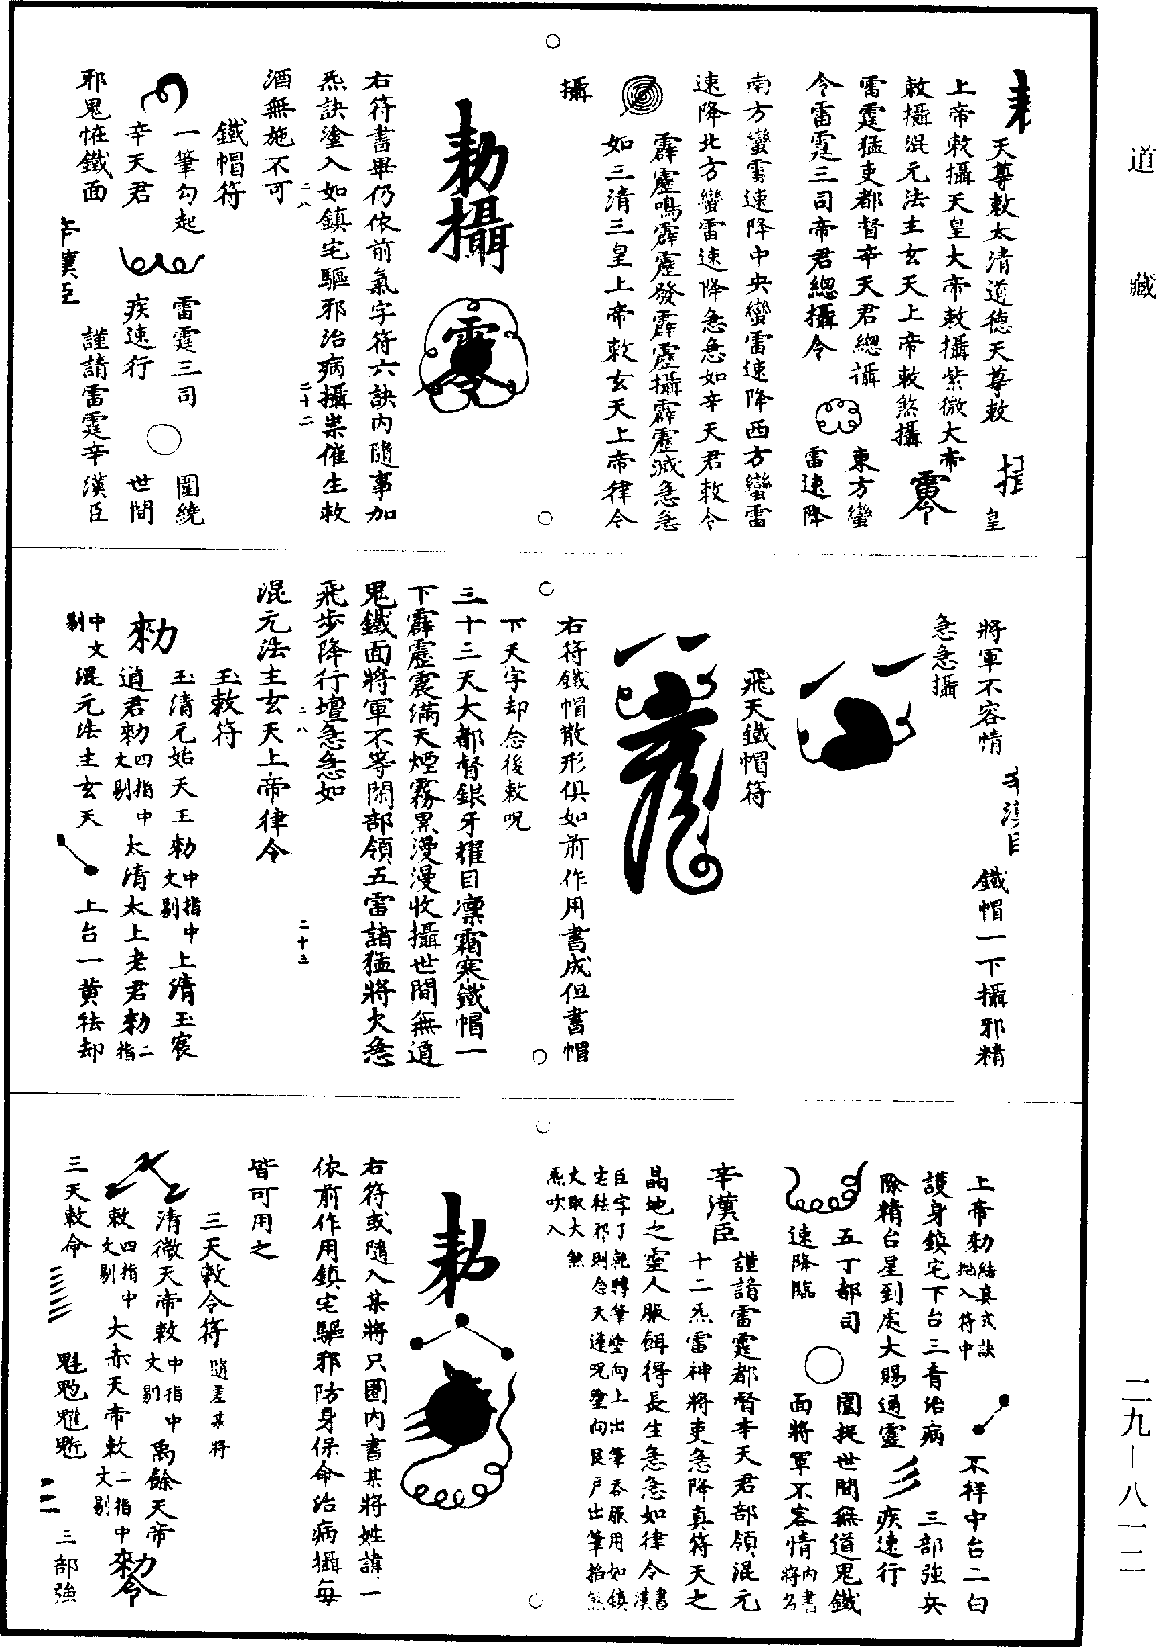 道藏
天尊敕太清道德天尊敕
皇
上帝敕攝天皇大帝敕攝紫微大帝
敕攝混元法主玄天上帝敕煞攝
雷霆猛吏都督辛天君總攝
東方蠻
令雷霆三司帝君總攝令
雷速降
南方蠻雷速降中央蠻雷速降西方蠻雷
速降北方蠻雷速降急急如辛天君敕令
霹靂鳴霹靂發霹靂攝霹靂滅急急
如三清三皇上帝敕玄天上帝律令
攝
敕攝
右符書畢仍依前氣字符六訣內隨事加
炁訣塗入如鎮宅驅邪治病攝祟催生敕
酒無施不可
鐵帽符
一筆勾起
雷霆三司
圍繞
辛天君
疾速行
世間
邪鬼恠鐵面
辛漢臣
謹請雷霆辛漢臣
將軍不容情
鐵帽一下攝邪精
急急攝
飛天鐵帽符
右符鐵帽散形俱如前作用書成但書帽
下天字却念後敕呪
三十三天大都督銀牙耀目凜霜寒鐵帽一
下霹靂震滿天煙霧黑漫漫收攝世間無道
鬼鐵面將軍不等閑部領五雷諸猛將火急
飛步降行壇急急如
混元法主玄天上帝律令
玉敕符
玉清元始天王勅中指中文剔上清玉宸
勅
道君勅四指中文剔太清太上老君勅二指
中文剔混元法主玄天
上台一黃祛却
上帝勅
不祥中台二白
護身鎮宅下台三青治病
三部強兵
除精台星到處大賜通靈
疾速行
五丁都司
圍捉世間無道鬼鐵
速降臨
面將軍不容情內書將名
謹請雷霆都督辛天君部領混元
辛漢臣
十二炁雷神將吏急降真符天之
晶地之靈人服餌得長生急急如律令書漢
臣字了
右符或隨入某將只圈內書某將姓諱一
依前作用鎮宅驅邪防身保命治病攝每
皆可用之
三天敕令符隨差某將
清微天帝敕中指中文剔禹餘天帝
敕四指中文剔大赤天帝敕二指中文剔
三天敕命
三部強
二九—八一二